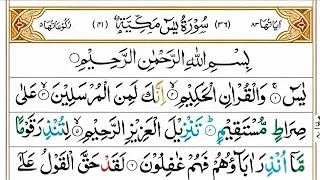 اٰیاتها ٨٣ (٣٦) سُوْرَةُ يٰسٓ مَكِّيَّةٌ (٤١) رکوعاتها ٥
بِسْمِ اللّٰهِ الرَّحْمٰنِ الرَّحِيْمِ
يٰسٓ ۚ‏﴿۱﴾ وَالْقُرْاٰنِ الْحَكِيْمِ ۙ‏﴿۲﴾ اِنَّكَ لَمِنَ الْمُرْسَلِيْنَ ۙ‏﴿۳﴾ عَلٰى
صِرَاطٍ مُّسْتَقِيْمٍ ؕ‏﴿۴﴾ تَنْزِيْلَ الْعَزِيْزِ الرَّحِيْمِ ۙ‏﴿۵﴾ لِتُنْذِرَ قَوْمًا
مَّاۤ اُنْذِرَ اٰبَآؤُهُمْ فَهُمْ غٰفِلُوْنَ ‏﴿۶﴾ لَقَدْ حَقَّ الْقَوْلُ عَلٰٓى